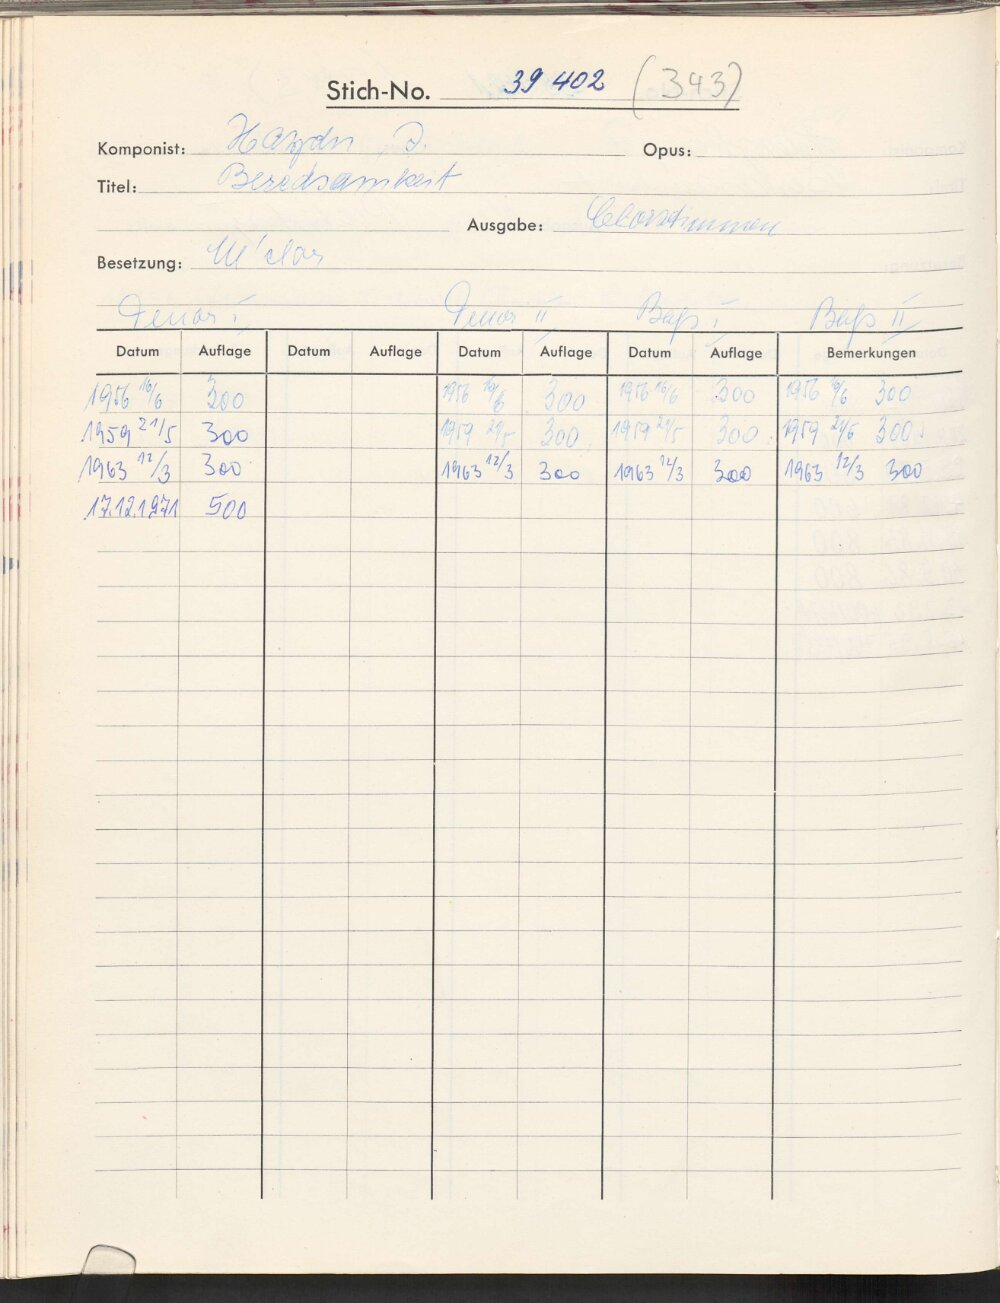 Stich-No. 39 402 (343)
Komponist: Haydn, J. Opus:
Titel: Beredsamkeit
Ausgabe: Chorstimmen
Besetzung: M'chor
Tenor I Tenor II Baß I Baß II
Datum Auflage Datum Auflage Datum Auflage Datum Auflage Bemerkungen
1956 16/6 300 1956 16/6 300 1956 16/6 300 1956 16/6 300
1959 21/5 300 1959 21/5 300 1959 21/5 300 1959 21/5 300
1963 12/3 300 1963 12/3 300 1963 12/3 300 1963 12/3 300
17.12.1971 500